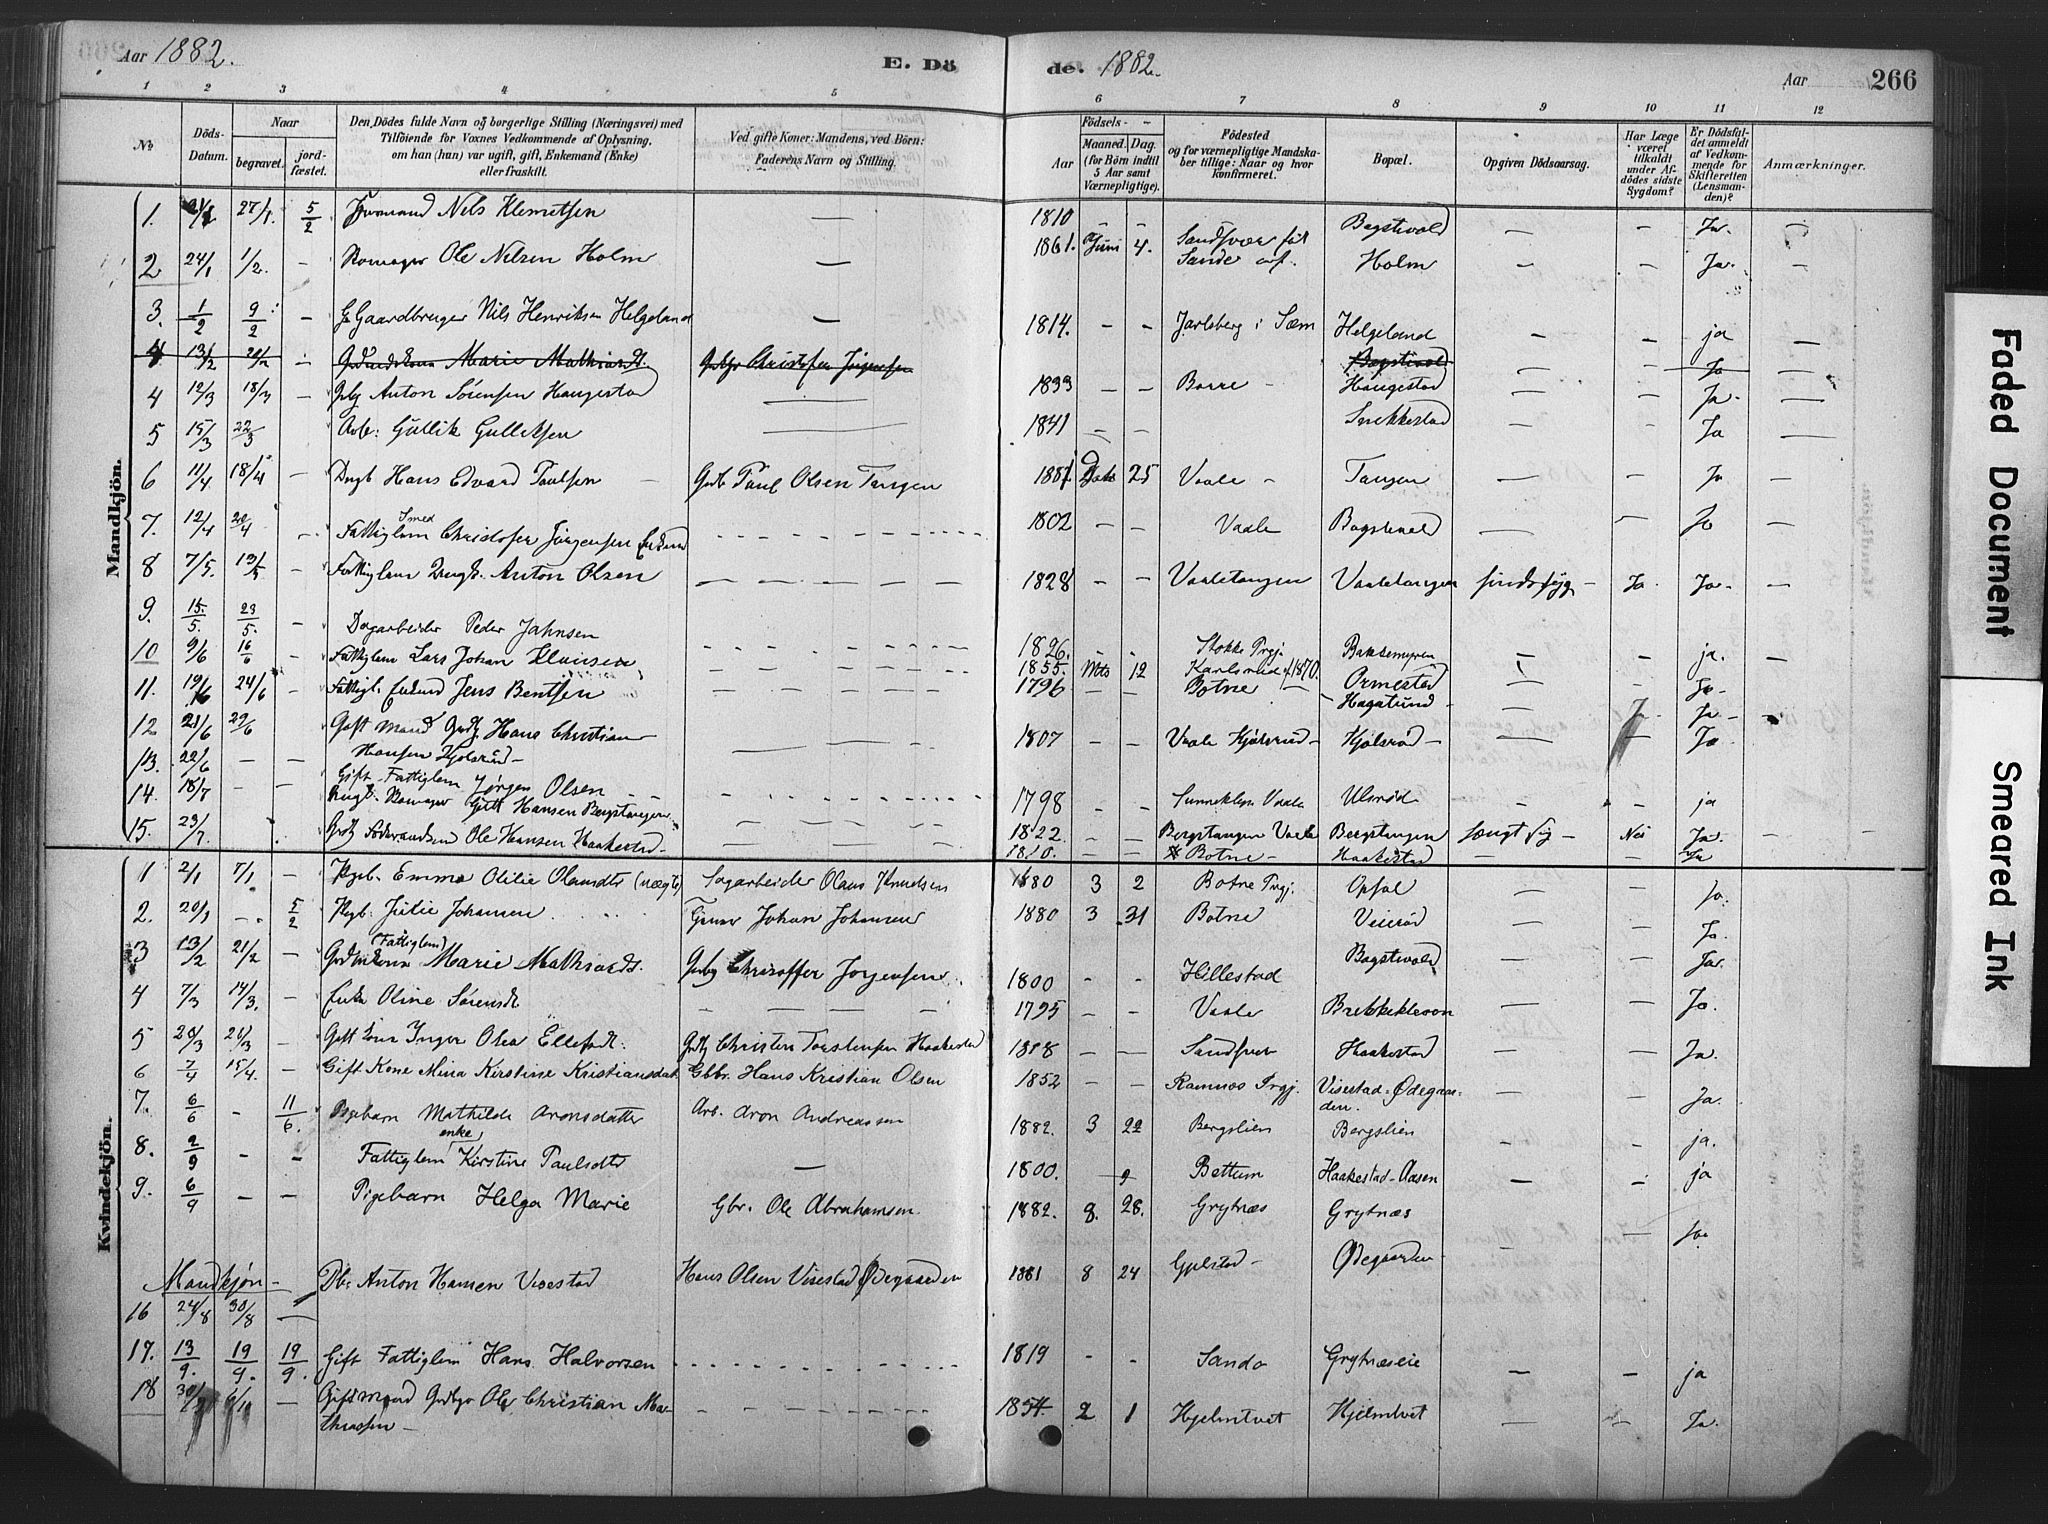 Aar 1882. E. Dö de. 1882. Aar 266
1 2 3 4 5 6 7 8 9 10 11 12
No Döds-Datum. Naar begravet. jordfæstet. Den Dödes fulde Navn og borgerlige Stilling (Næringsvei) med Tilföiende for Voxnes Vedkommende af Oplysning, om han (hun) var ugift, gift, Enkemand (Enke) eller fraskilt. Ved gifte Koner: Mandens, ved Börn: Faderens Navn og Stilling. Födsels- Aar Maaned. Dag. (for Börn indtil 5 Aar samt Værnepligtige). Födested og for værnepligtige Mandskaber tillige: Naar og hvor konfirmeret. Bopæl. Opgiven Dödsaarsag. Har Læge været tilkaldt under Afdödes sidste Sygdom? Er Dödsfaldet anmeldt af Vedkommende for Skifteretten (Lensmanden)? Anmærkninger.
Mandkjön.
1. 27/1 5/2 Nils Klemetsen — 1810 - - Bogstvold — - Ja —
2 24/1 1/2 - Ole Nilsen Holm — 1861. Juni 4. Sande Holm — - Ja. —
3. 1/2 9/2 - Gaardbruger Nils Henriksen Helgeland — 1814. - - Jarlsberg i Sæm Helgeland — - ja —
4 13/2 20/2 - Marie Mathiasdt. Christofer Jörgensen Bogstvold — - Ja —
4 12/3 18/3 - Anton Sörensen Haugestad — 1833 - - Borre - Haugestad — - Ja. —
5 15/3 22/3 Arb: Gullik Gulliksen — 1841 - - Snekkestad — - Ja —
6 11/4 18/4 - Hans Edvard Paulsen - Paul Olsen Tangen 25 Vaale - Tangen — - Ja —
7. 12/4 20/4 - Fattiglem Smed Christofer Jörgensen 1802 - - Vaale Bogstvold — - Jo —
8 7/5. 13/5 - Fattiglem Anton Olsen — 1828 - - Vaaletangen Vaaletangen Sindssyg - Ja. Ja. —
9. 15./5. 23/5. - Dagarbeider Peder Jahnsen 1826. - - Stokke Prgj. Bakkemyren — - ja. -
10 9/6 16/6 - Fattiglem Lars Johan 1855. 12 1870. Ormestad — - Ja -
11. 19/6 24/6 - Fattigl. Jens Bentsen — 1796 - - Botne - Hagatund — Ja -
12 21/6 29/6 Gift Mand Hans Christian Hansen — 1807 - - Vaale - — - Ja
13. 22/6 - -
14. 18/7 - - Gift Fattiglem Jørgen Olsen 1798 - - Vaale Ulsröd - ja
Gutt Hansen Bergstangen — 1822. - - Bergstangen Vaale Bergstangen - Nei Ja. -
15. 23/7. Ole Hansen Haakestad — - - Botne - Haakestad - - Ja
Kvindekjön.
1 2/1 7/1 - Pigeb. Emma Otilie Olausdtr Dagarbeider Olaus Knudsen 1880 3 2 Botne Prgj. Opsal — - Ja.
2. 20/1 - 5/2 Pigeb. Julie Johansen Johan Johansen 1880 3 31 Botne Veieröd — - Ja.
3 13/2 21/2 - (Fattiglem) Marie Mathiasdt. Christoffer Jorgensen 1800 - - Hillestad Bogstvold — - Ja.
4 7/3 14/3. - Enke Oline Sörensdt — 1795 - - Vaale Brekkekleven — - Jo.
5 20/3 21/3 - Gift Kone Inger Olea Ellefsdt. Christen Torstensen Haakestad 1818 - — Haakestad — - Ja.
6 7/4 15/4. - Gift Kone Mina Kirstine Kristiansdat. Gbbr. Hans Kristian Olsen 1852 - - Ramnæs Prgj. Visestad-Ødegaarden. — - Ja.
7. 6/6 - 11/6. Pigebarn Mathilde Aronsdatter Arb. Aron Andreassen 1882. 3 22 Bergslien Bergslien - - ja.
8. 2/9 - - Fattiglem enke Kirstine Paulsdtr — 1800. - 9 Bettum Haakestad-Aasen — - ja
9. 6/9 - - Pigebarn Helga Marie Gbr. Ole Abrahamsen 1882. 8. 28. Grytnæs Grytnæs - - ja
Mandkjön - Anton Hansen Visestad Hans Olsen Visestad Ødegaarden 1881 8 24 Gjelstad - Ødegaarden -
16 24/8 30/8 —
17. 13/9. 19/9. 19/9. Gift Fattiglem Hans Halvorsen 1819 - - Sande Grytnæseie — - ja
18 30/9 - Gift mand Ole Christian Mathiassen - 1854. 2 1 Hjelmtvet Hjelmtvet — - Ja.
Faded Document
Smeared Ink